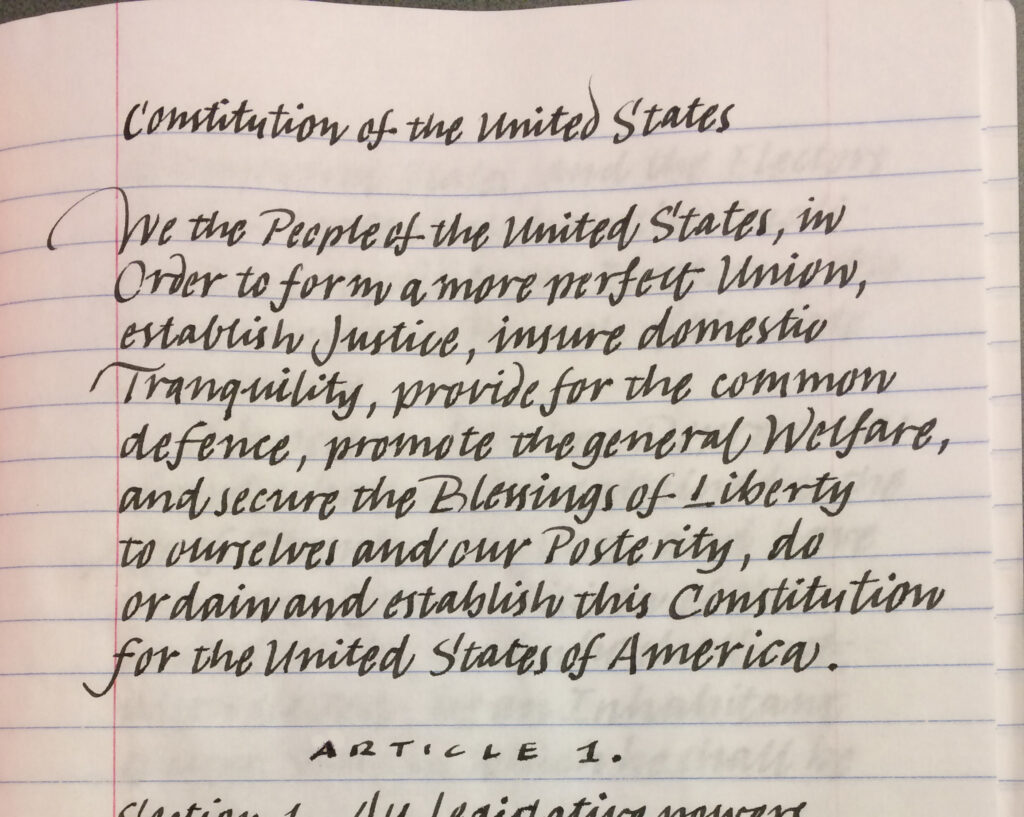 Constitution of the United States
We the People of the United States, in
Order to form a more perfect Union,
establish Justice, insure domestic
Tranquility, provide for the common
defence, promote the general Welfare,
and secure the Blessings of Liberty
to ourselves and our Posterity, do
ordain and establish this Constitution
for the United States of America.
ARTICLE 1.
Section 1. All Legislative powers